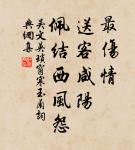 最傷情
送客咸陽
佩結西風怨
吳文英瑣窗寒玉蘭詞
典網集